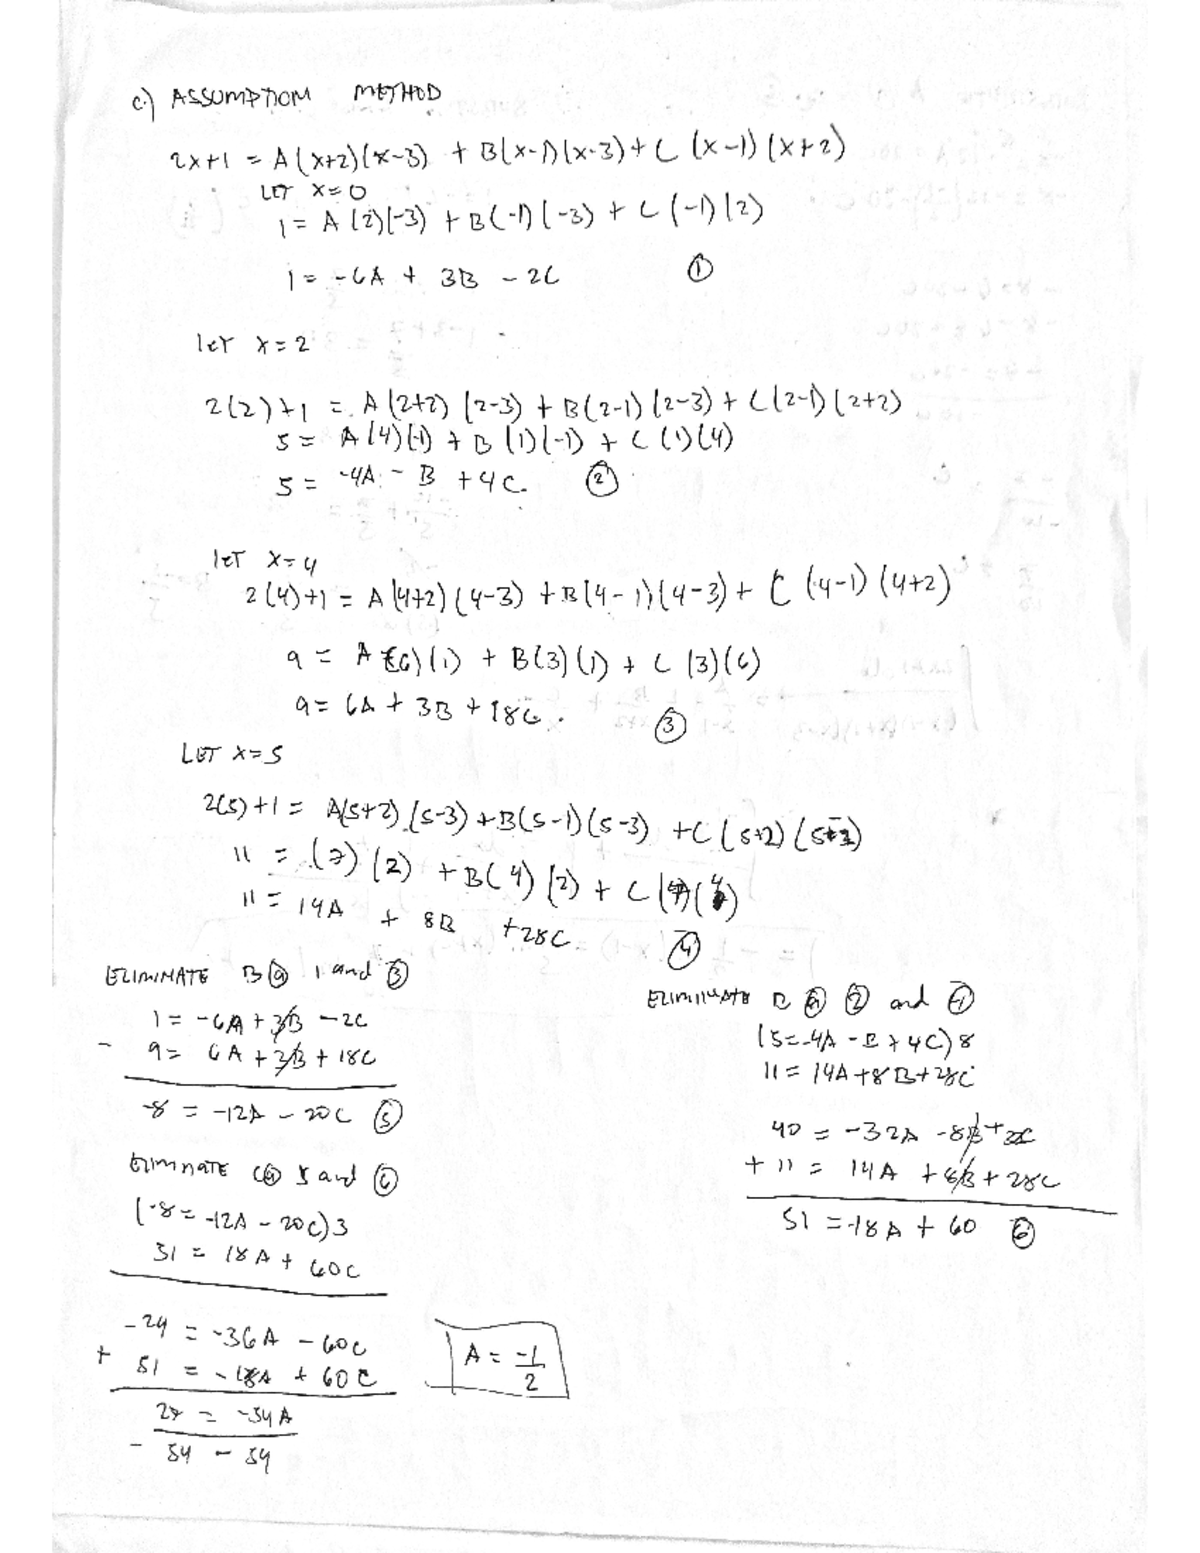 c.) ASSUMPTION METHOD
2x+1 = A(x+2)(x-3) + B(x-1)(x-3) + C (x-1)(x+2)
LET x=0
1 = A (2)(-3) + B(-1)(-3) + C (-1)(2)
1 = -6A + 3B - 2C ①
let x=2
2(2)+1 = A(2+2)(2-3) + B(2-1)(2-3) + C(2-1)(2+2)
5 = A(4)(-1) + B(1)(-1) + C(1)(4)
5 = -4A - B + 4C. ②
let x=4
2(4)+1 = A(4+2)(4-3) + B(4-1)(4-3) + C (4-1)(4+2)
9 = A (6)(1) + B(3)(1) + C (3)(6)
9 = 6A + 3B + 18C. ③
LET x=5
2(5)+1 = A(5+2)(5-3) + B(5-1)(5-3) + C(5+2)
11 = (7)(2) + B(4)(2) + C
11 = 14A + 8B + 28C ④
ELIMINATE B @ 1 and ③
1 = -6A + 3B - 2C
- 9 = 6A + 3B + 18C
-8 = -12A - 20C ⑤
ELIMINATE C @ 5 and ⑥
(-8 = -12A - 20C)3
51 = 18A + 60C
-24 = -36A - 60C
+ 51 = -18A + 60C
27 = -54A
- 54 - 54
A = -1/2
ELIMINATE B @ ② and ④
(5=-4A - B + 4C)8
11 = 14A + 8B + 28C
40 = -32A - 8B +
+ 11 = 14A + 8B + 28C
51 = -18A + 60 ⑥